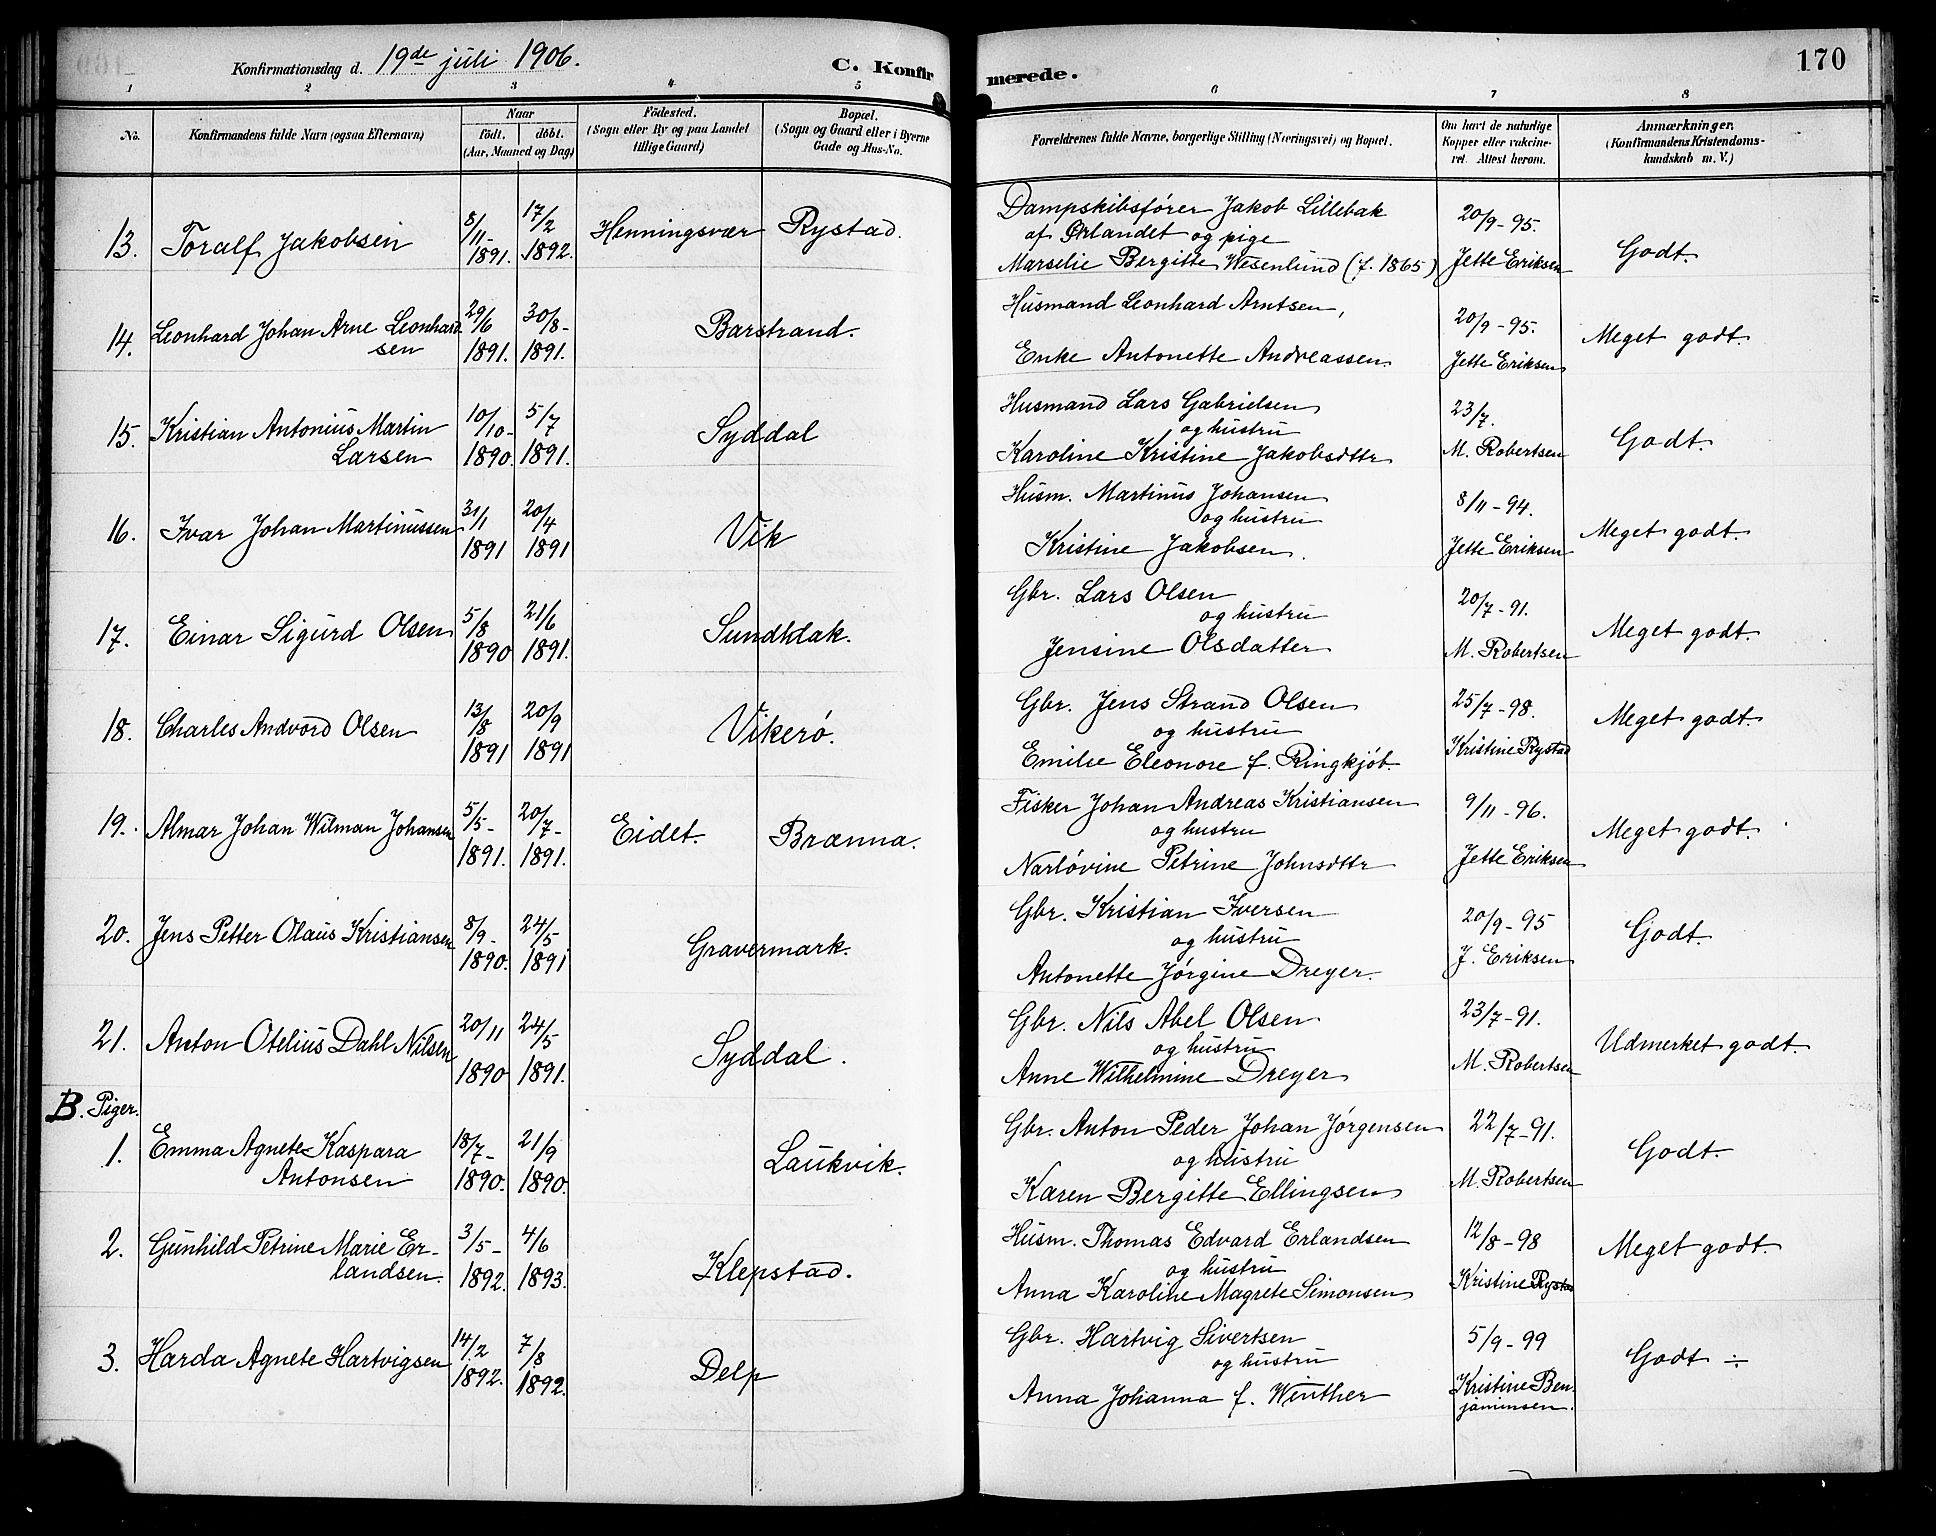 Konfirmationsdag d. 19de juli 1906. C. Konfirmerede. 170
1 2 3 4 5 6 7 8
No. Konfirmandens fulde Navn (ogsaa Efternavn) Naar født. døbt. (Aar, Maaned og Dag) Fødested. (Sogn eller By og paa Landet tillige Gaard) Bopæl. (Sogn og Gaard eller i Byerne Gade og Hus-No. Forældrenes fulde Navne, borgerlige Stilling (Næringsvei) og Bopæl. Om havt de naturlige Kopper eller vakcineret. Attest herom. Anmærkninger. (Konfirmandens Kristendomskundskab m. V.)
13. Toralf Jakobsen 8/11-1891. 17/2 1892. Henningsvær Rystad. Dampskibsfører Jakob Lillebak
af Ørlandet og pige
Marselie Bergitte Wesenlund (f. 1865) 20/9-95. Jette Eriksen Godt.
14. Leonhard Johan Arne Leonhardsen 29/6 1891. 30/8-1891. Barstrand. Husmand Leonhard Arntsen,
Enke Antonette Andreassen. 20/9-95. Jette Eriksen Meget godt.
15. Kristian Antonius Martin
Larsen 10/10-1890. 5/7 1891. Syddal Husmand Lars Gabrielsen
og hustru
Karoline Kristine Jakobsdttr 23/7. M. Robertsen Godt.
16. Ivar Johan Martinussen 31/1 1891 20/4 1891 Vik Husm. Martinus Johansen
og hustru
Kristine Jakobsen. 8/11-94. Jette Eriksen Meget godt.
17. Einar Sigurd Olsen 5/8 1890 21/6 1891. Sundklak. Gbr. Lars Olsen
og hustru
Jensine Olsdatter 20/7-91. M. Robertsen Meget godt.
18. Charles Andvord Olsen 13/8 1891 20/9 1891 Vikerø. Gbr. Jens Strand Olsen
og hustru
Emilie Eleonore f. Ringkjøb. 25/7-98. Kristine Rystad Meget godt.
19. Almar Johan Wilman Johansen 5/5-1891. 20/7-1891. Eidet. Brænna. Fisker Johan Andreas Kristiansen
og hustru
Narløvine Petrine Johnsdttr 9/11-96. Jette Eriksen Meget godt.
20. Jens Petter Olaus Kristiansen 8/9-1890. 24/5 1891 Gravermark. Gbr. Kristian Iversen
og hustru
Antonette Jørgine Dreyer. 20/9-95 J. Eriksen Godt.
21. Anton Otelius Dahl Nilsen 20/11 1890 24/5 1891. Syddal. Gbr. Nils Abel Olsen
og hustru
Anne Wilhelmine Dreyer 23/7-91. M. Robertsen Udmerket godt.
B. Piger.
1. Emma Agnete Kaspara
Antonsen 18/7-1890. 21/9 1890. Laukvik. Gbr. Anton Peder Johan Jørgensen
og hustru
Karen Bergitte Ellingsen 22/7-91. M. Robertsen Godt.
2. Gunhild Petrine Marie Erlandsen. 3/5-1892. 4/6 1893. Klepstad. Husm. Thomas Edvard Erlandsen
og hustru
Anna Karoline Magrete Simonsen 12/8-98 Kristine Rystad Meget godt.
3. Harda Agnete Hartvigsen 14/2 1892. 7/8 1892. Delp Gbr. Hartvig Sivertsen
og hustru
Anna Johanna f. Winther 5/9-99 Kristine Benjaminsen. Godt ÷